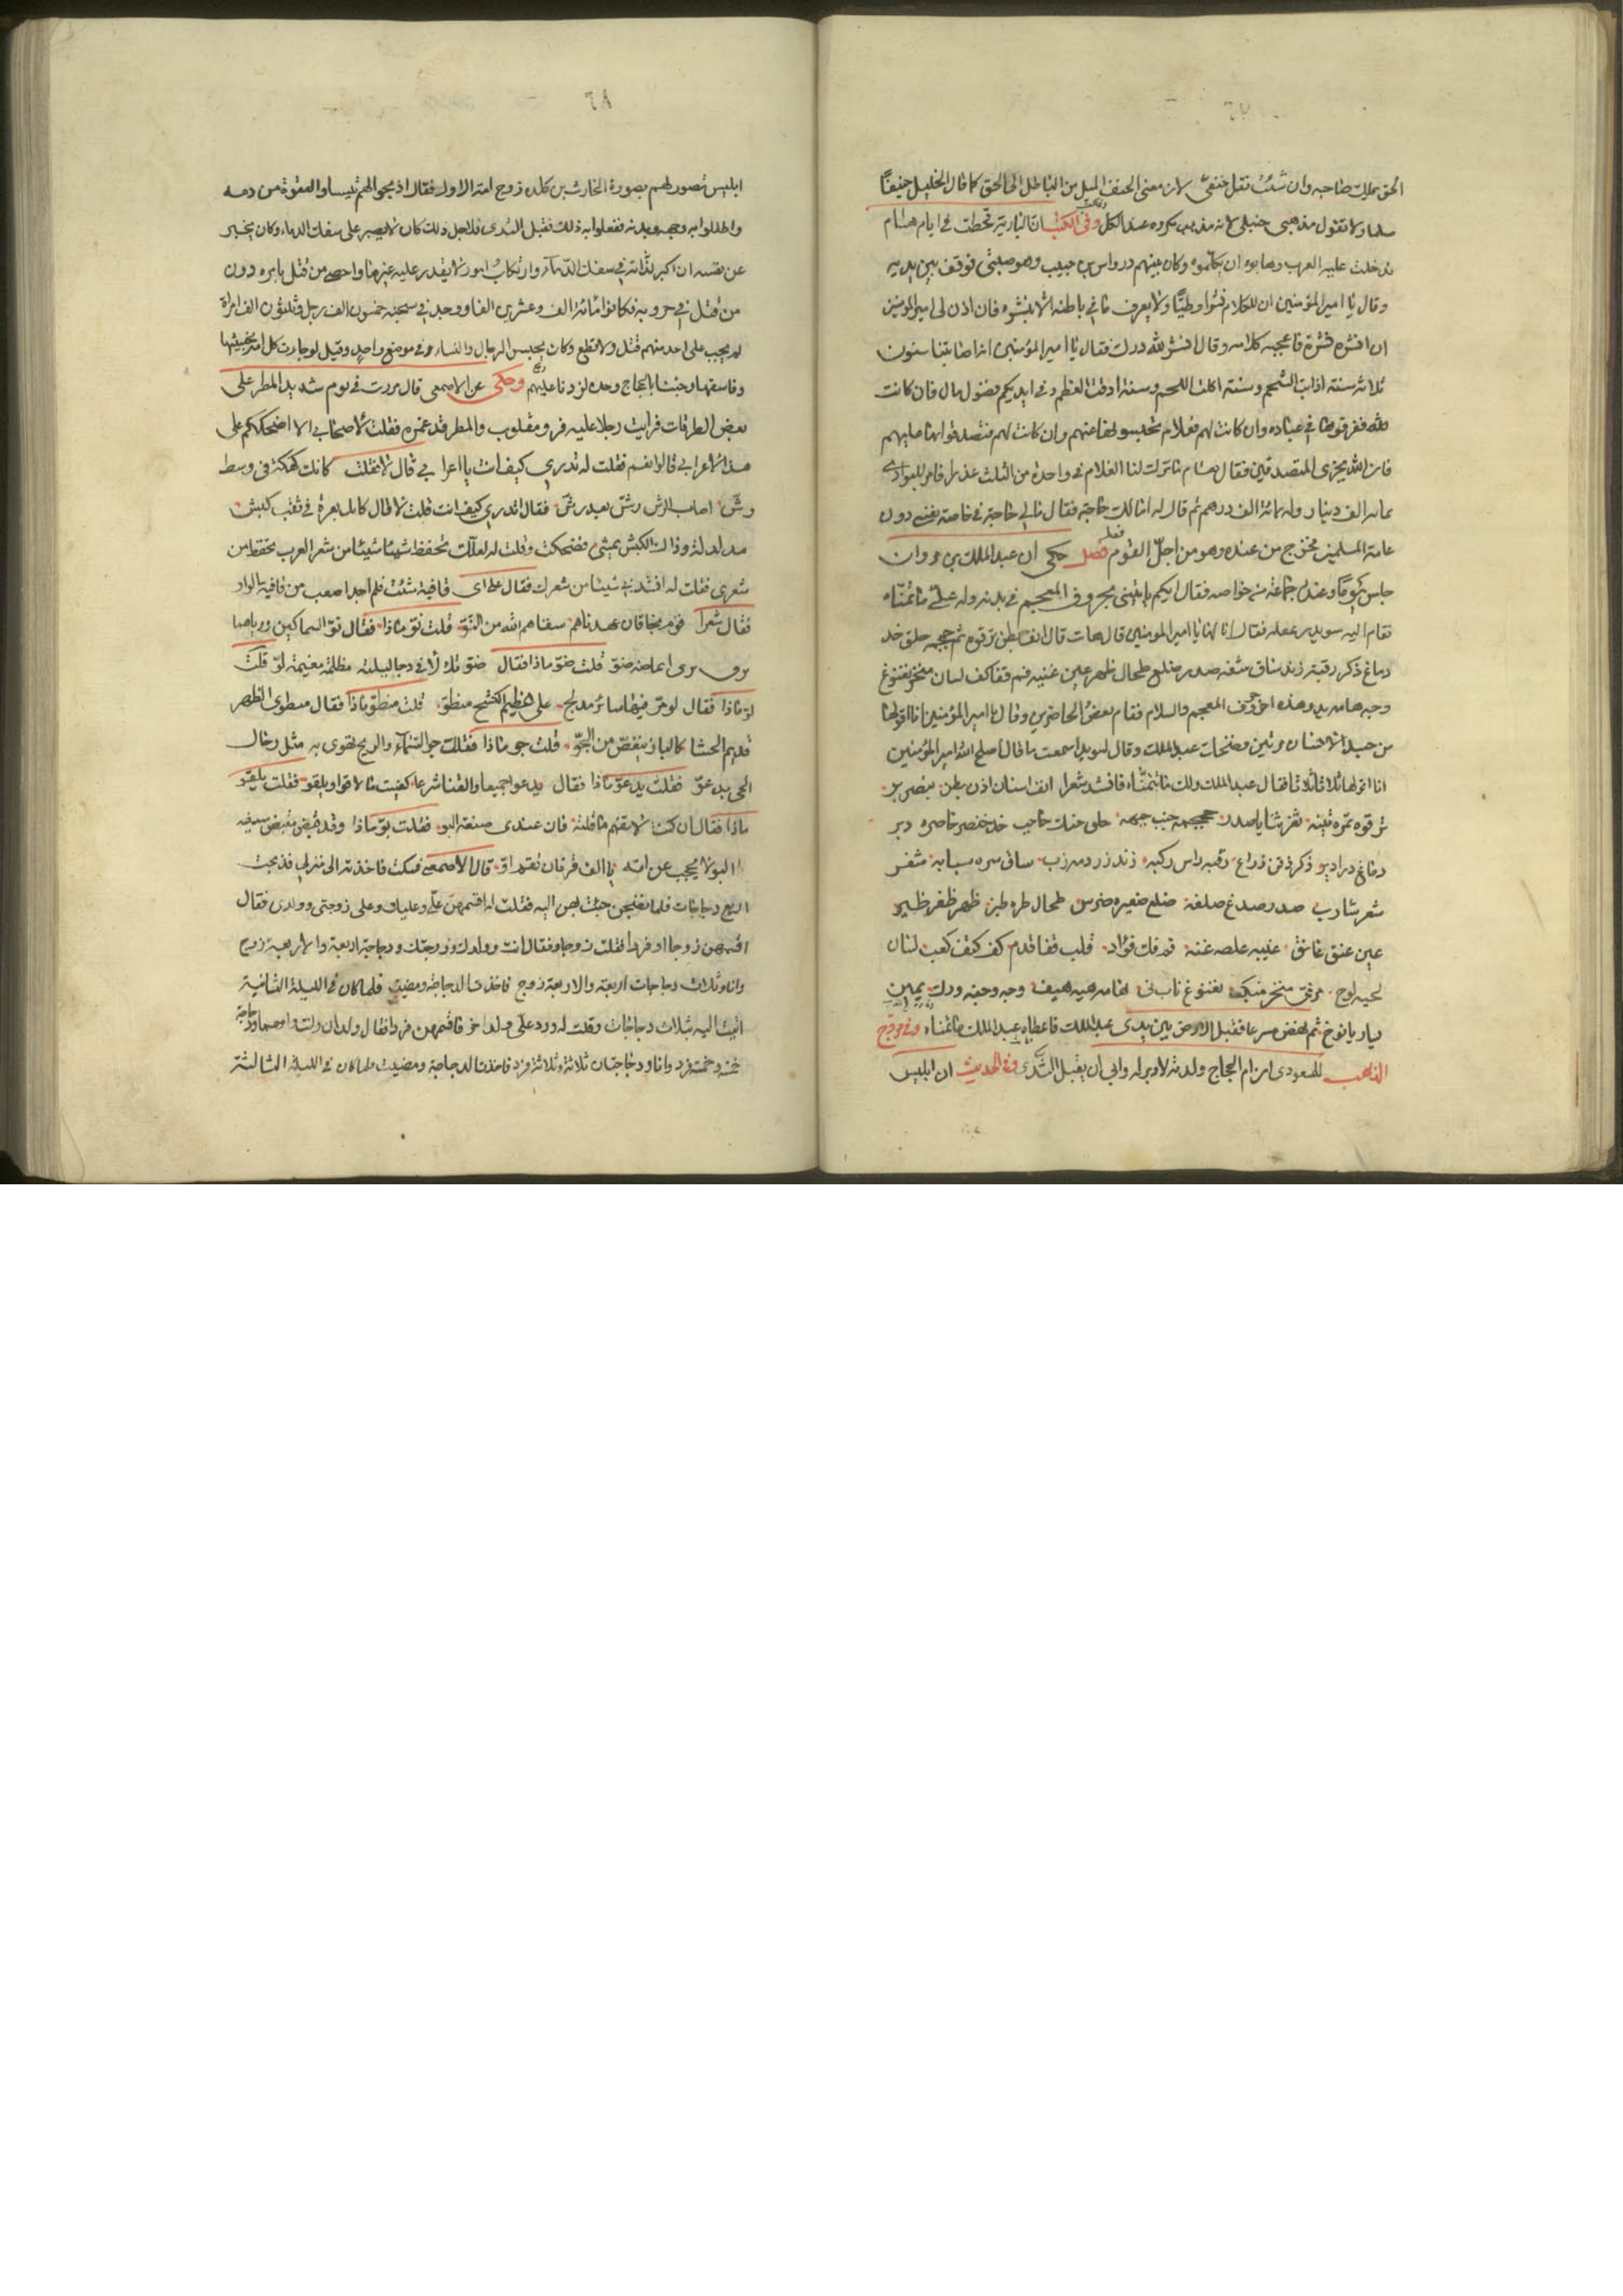 ٦٧
الحق يملك صاحبه وان شئت تقل حنفي لان معنى الحنف الميل من الباطل الى الحق كما قال الخليل حنيفا
مسلما ولا تقول مذهبي حنبلي لانه مذهب مكروه عند الكل وفي الكتب ان البادية قحطت في ايام هشام
فدخلت عليه العرب وهابوه ان يكلموه وكان بينهم درواس بن حبيب وهو صبي فوقف بين يديه
وقال يا امير المؤمنين ان للكلام نشرا وطيا ولا يعرف ما في باطنه الا بنشره فان اذن لي امير المؤمنين
ان انشره نشرته فاعجبه كلامه وقال انشر لله درك فقال يا امير المؤمنين انه اصابتنا سنون
ثلاثة سنة اذابت الشحم وسنة اكلت اللحم وسنة ادقت العظم وفي ايديكم فضول مال فان كانت
لله ففرقوها في عباده وان كانت لهم فعلام تحبسونها عنهم وان كانت لكم فتصدقوا بها عليهم
فان الله يجزي المتصدقين فقال هشام ما ترك لنا الغلام في واحدة من الثلث عذرا فامر للبوادي
بمائة الف دينار وله بمائة الف درهم ثم قال له اما لك حاجة فقال مالي حاجة في خاصة نفسي دون
عامة المسلمين فخرج من عنده وهو من اجل القوم فصل حكى ان عبد الملك بن مروان
جلس يوما وعنده جماعة من خواصه فقال ايكم ياتيني بحروف المعجم في بدنه وله علي ما تمناه
فقام اليه سويد بن غفلة فقال انا لها يا امير المؤمنين قال هات قال انف بطن ترقوه ثغر جمجمه حلق خد
دماغ ذكر رقبة زند ساق شفه صدر ضلع طحال ظهر عين غبب فم قفا كف لسان منخر نغنوغ
وجه هامه يد وهذه اخر حروف المعجم والسلام فقام بعض الحاضرين وقال يا امير المؤمنين انا اقولها
من جسد الانسان مرتين فضحك عبد الملك وقال لسويد اسمعت ما قال اصلح الله امير المؤمنين
انا اقولها ثلاثا ثلاثا فقال عبد الملك ولك ما تتمناه فانشد شعرا انف اسنان اذن بطن بنصر بز
ترقوه تمره تينه ثغر ثنايا ثدي جمجمه جنب جبهه حلق حنك حاجب خد خنصر خاصره دبر
دماغ درادير ذكر ذقن ذراع رقبه راس ركبه زند زردمه زب ساق سره سبابه شفر
شعر شارب صدر صدغ صلعه ضلع ضفيره ضرس طحال طره طيز ظهر ظفر ظليم
عين عنق عاتق غبب غلصمه غنه فم فك فؤاد قلب قفا قدم كف كتف كعب لسان
لحيه لوح مرفق منخر منكب نغنوغ ناب نن هامه هيه هيف وجه وجنه ورك يمين
يسار يافوخ ثم نهض مسرعا فقبل الارض بين يدي عبد الملك فاعطاه عبد الملك ما تمناه وفي مروج
الذهب للمسعودي ان ام الحجاج ولدته لا دبر له وابى ان يقبل الثدي وفي الحديث ان ابليس
٦٨
ابليس تصور لهم بصورة الحارث بن كلده زوج امه الاول فقال اذبحوا لهم تيسا والعقوه من دمه
واطلوا به وجهه وبدنه ففعلوا به ذلك فقبل الثدي فلاجل ذلك كان لا يصبر على سفك الدماء وكان يخبر
عن نفسه ان اكبر لذاته في سفك الدماء وارتكاب امور لا يقدر عليها غيره واحصي من قتل بامره دون
من قتل في حروبه فكانوا مائة الف وعشرين الفا ووجد في سجنه خمسون الف رجل وثلثون الف امراة
لم يجب على احد منهم قتل ولا قطع وكان يحبس الرجال والنساء في موضع واحد وقيل لو جاءت كل امة بخبيثها
وفاسقها وجئنا بالحجاج وحده لزدنا عليهم وحكى عن الاصمعي قال مررت في يوم شديد المطر على
بعض الطرقات فرايت رجلا عليه فرو مقلوب والمطر قد غمره فقلت لاصحابي الا اضحككم على
هذا الاعرابي قالوا نعم فقلت له تدري كيف انت يا اعرابي قال لا فقلت كانك كعكة في وسط
رش اصاب الرش رش بعد رش فقال اتدري كيف انت قلت لا قال كانك بعرة في ثقب كبش
مدلدلة وذاك الكبش يمشي فضحكت وقلت له لعلك تحفظ شيئا من شعر العرب يحفظ من
شعري فقلت له انشدني شيئا من شعرك فقال على اي قافية شئت فلم اجد اصعب من قافية الواو
فقال شعرا قوم بخاقان عهدناهم سقاهم الله من النو قلت نو ماذا فقال نو السماكين ورياهما
برق يرى ايماضه ضو قلت ضو ماذا فقال ضو تلالا في دجا ليلة مظلمة مغيمة لو قلت
لو ماذا فقال لو مر فيها سائر مدلج على هظيم الكشح منطو قلت منطو ماذا فقال منطوي الظهر
قديم الحشا كالباز ينقض من الجو قلت جو ماذا فقلت جو السماء والريح تهوي به مثل رجال
الحي يدعو فقلت يدعو ماذا فقال يدعو جميعا والقنا شرعا كفيت ما لاقوا ويلقو فقلت يلقو
ماذا فقال ان كنت لا تفهم ما قلته فان عندي صنعة البو فقلت بو ماذا وقد قبض مقبض سيفه
البو لا يحجب عن امه يا الف قرنان تقوم او قال الاصمعي فسكت فاخذته الى منزلي فذبحت
اربع دجاجات فلما نضجن جئت بهن اليه فقلت له اقسمهن علي وعليك وعلى زوجتي وولدي فقال
اقسمهن زوجا او فردا فقلت زوجا فقال انت وولدك وزوجتك ودجاجة اربعة والاربعة زوج
وانا وثلاث دجاجات اربعة والاربعة زوج فاخذت الدجاجة ومضيت فلما كان في الليلة الثانية
اتيت اليه بثلاث دجاجات وقلت له ورد علي ولد اخر فاقسمهن فردا فقال ولدان وانت وامهما ودجاجة
خمسة وخمسة فرد وانا ودجاجتان ثلاثة وثلاثة فرد فاخذت الدجاجة ومضيت فلما كان في الليلة الثالثة